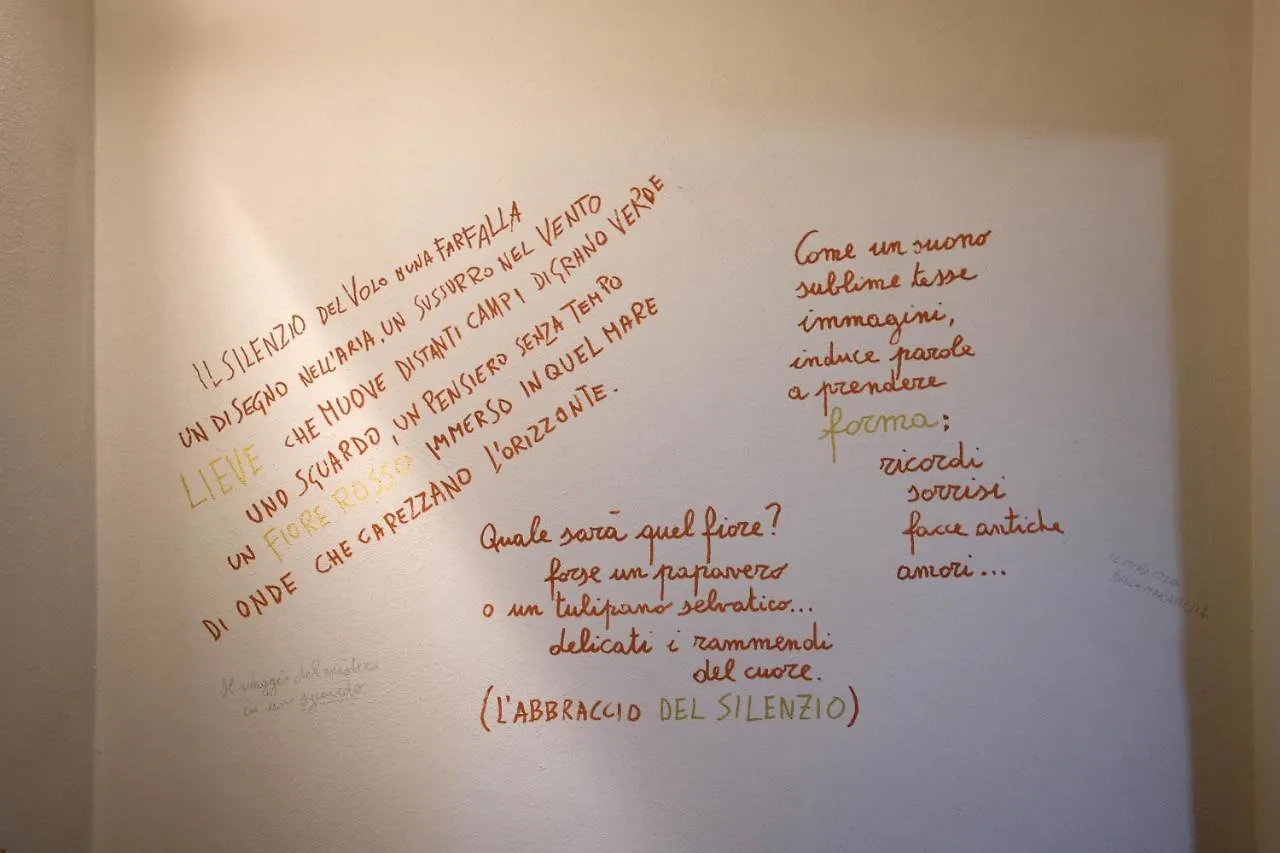 IL SILENZIO DEL VOLO D'UNA FARFALLA
UN DISEGNO NELL'ARIA, UN SUSSURRO NEL VENTO
LIEVE CHE MUOVE DISTANTI CAMPI DI GRANO VERDE
UNO SGUARDO, UN PENSIERO SENZA TEMPO
UN FIORE ROSSO IMMERSO IN QUEL MARE
DI ONDE CHE CAREZZANO L'ORIZZONTE.
Il viaggio del
in uno sguardo.
Quale sarà quel fiore?
forse un papavero
o un tulipano selvatico...
delicati i rammendi
del cuore.
(L'ABBRACCIO DEL SILENZIO)
Come un suono
sublime tesse
immagini,
induce parole
a prendere
forma;
ricordi
sorrisi
facce antiche
amori...